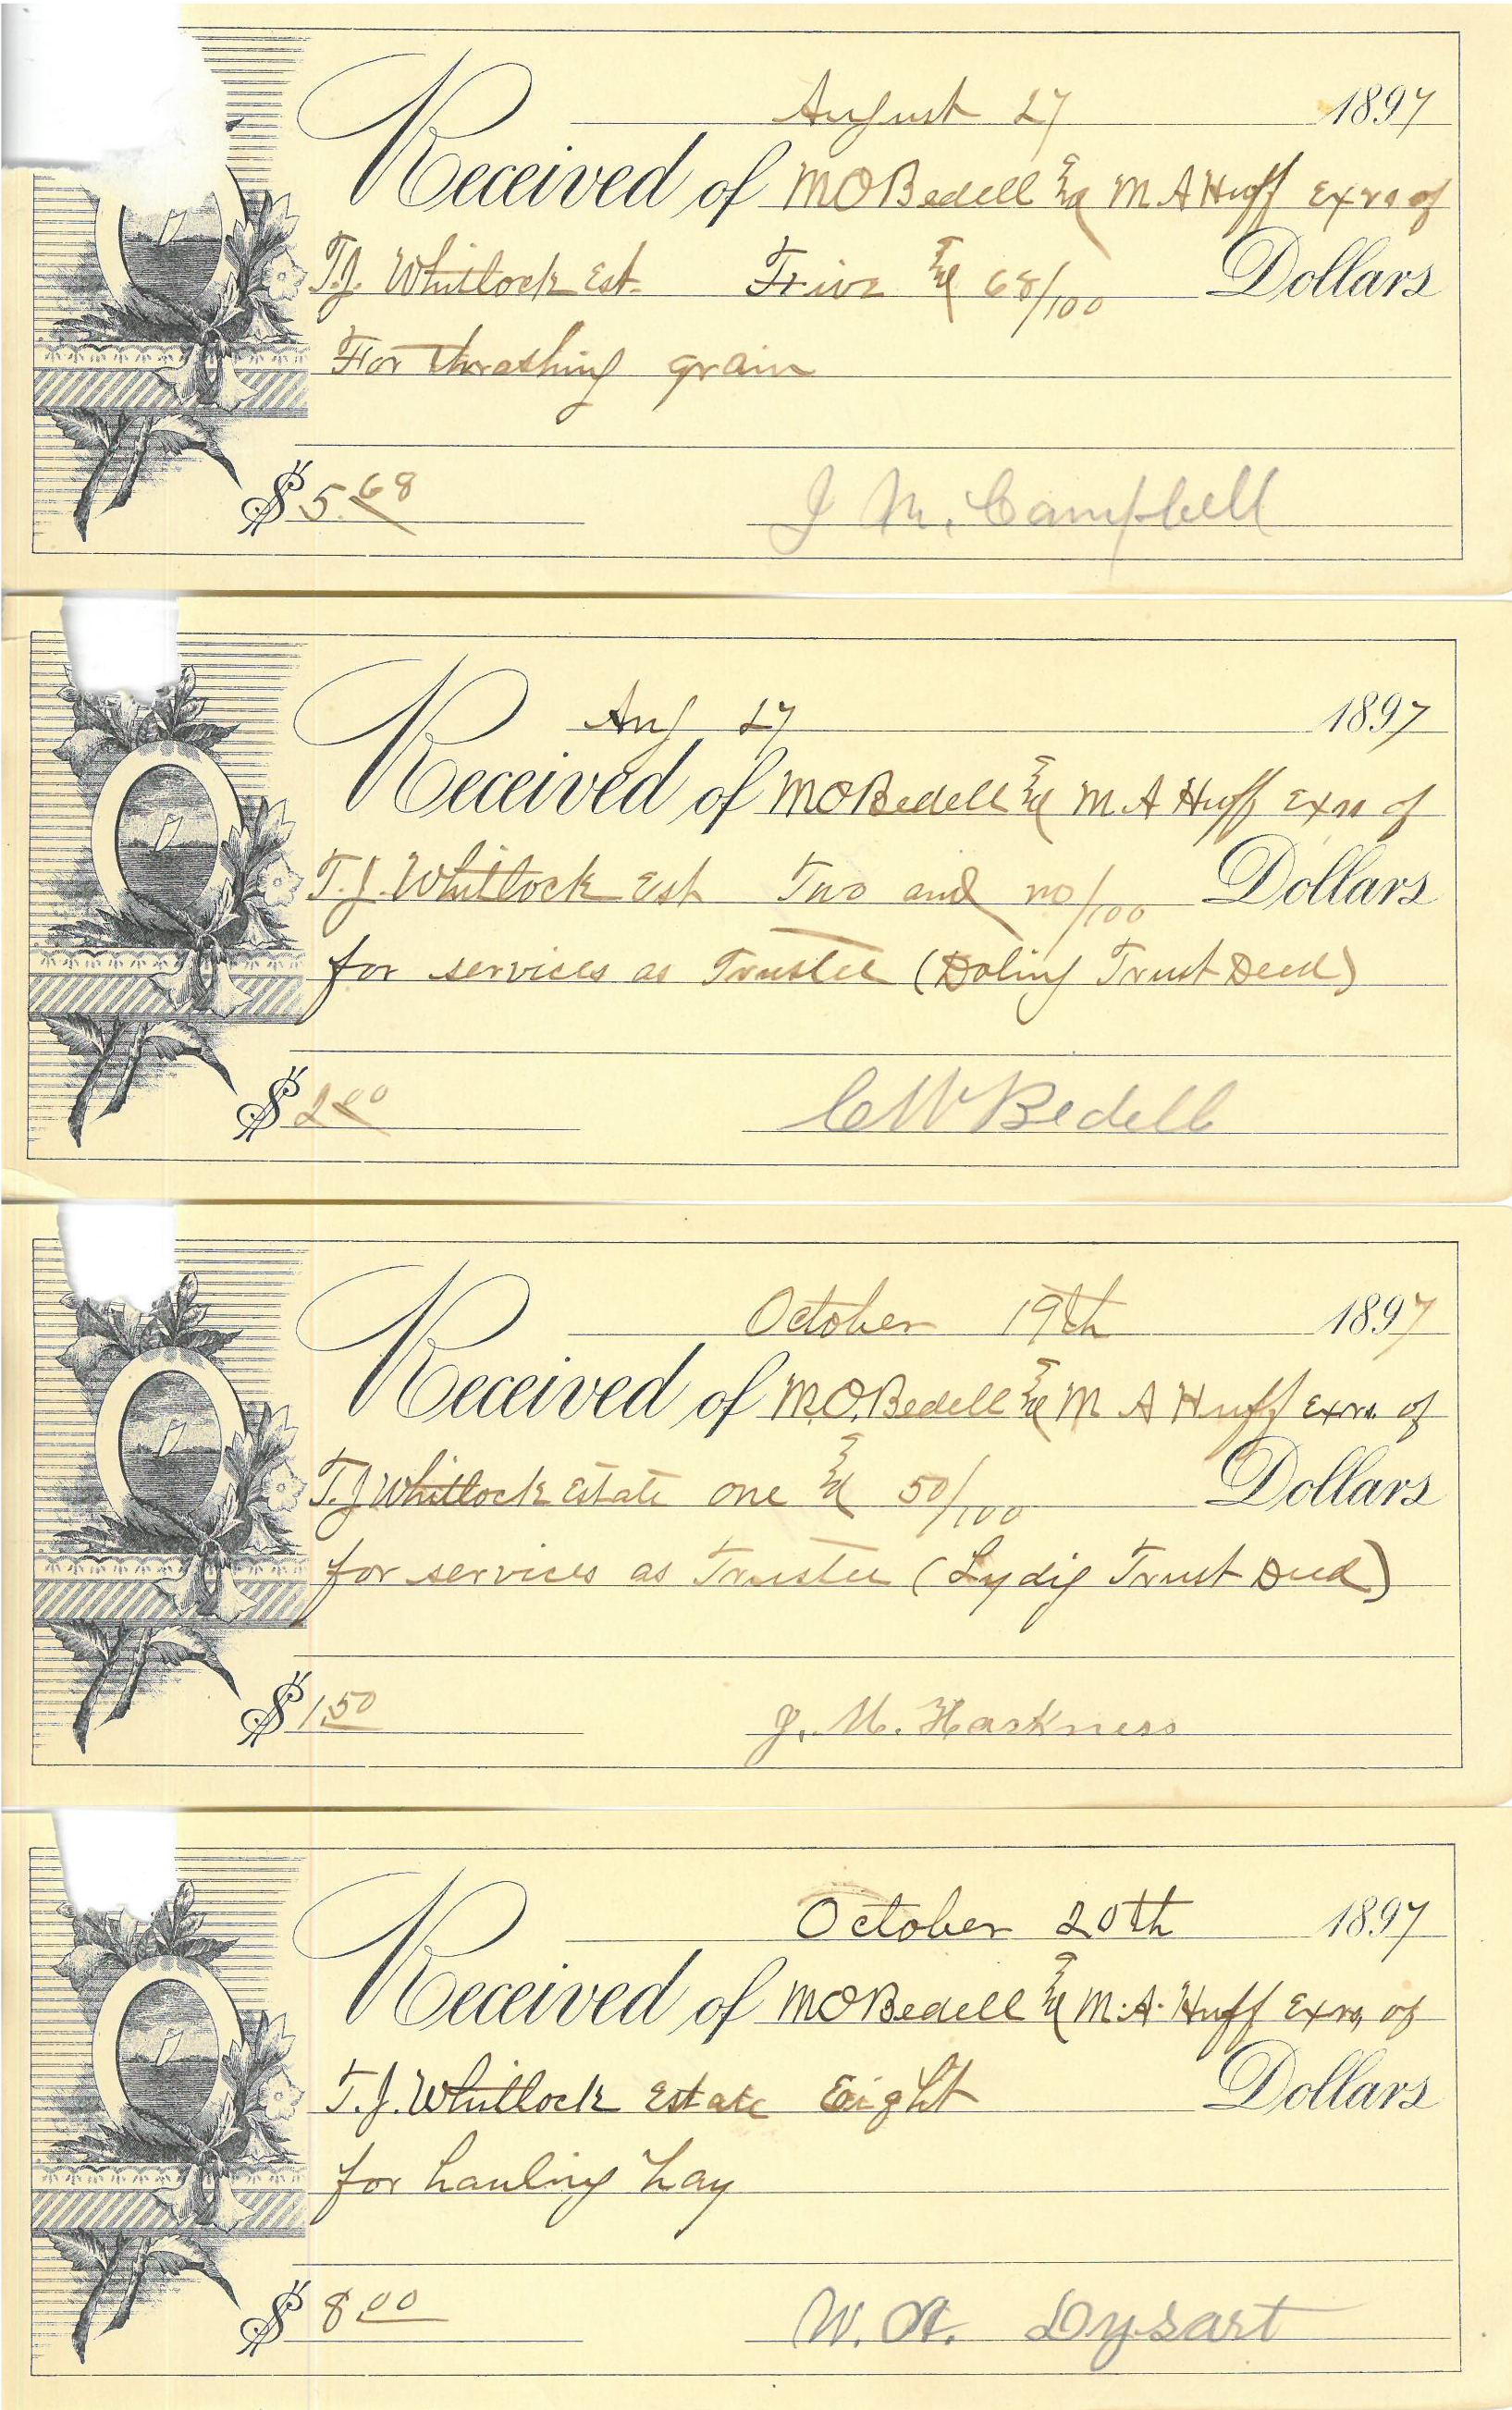 August 27 1897
Received of MO Bedell & M A Huff Exrs of
T.J. Whitlock Est. Five & 68/100 Dollars
For thrashing grain
$ 5.68 J M. Campbell
Aug 27 1897
Received of MO Bedell & M A Huff Exrs of
T.J. Whitlock Est Two and no/100 Dollars
for services as Trustee (Doling Trust Deed)
$ 2.00 C W Bedell
October 19th 1897
Received of M.O. Bedell & M A Huff Exrs. of
T.J Whitlock Estate one & 50/100 Dollars
for services as Trustee (Lydig Trust Deed)
$ 1.50 J. M. Harkness
October 20th 1897
Received of MO Bedell & M. A. Huff Exrs, of
T.J. Whitlock Estate Eight Dollars
for hauling hay
$ 8.00 W. A. Dysart